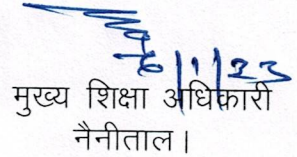 6/1/23
मुख्य शिक्षा अधिकारी
नैनीताल।